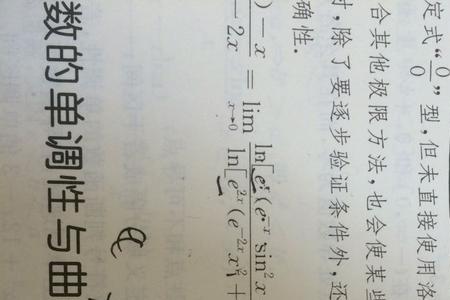 定式“0/0”型,但未直接使用洛
合其他极限方法,也会使某些
时,除了要逐步验证条件外,还
确性.
) − x / − 2x = lim x→0 ln[e^x(e^{-x} sin² x / ln[e^{2x}(e^{-2x} x² +
数的单调性与曲